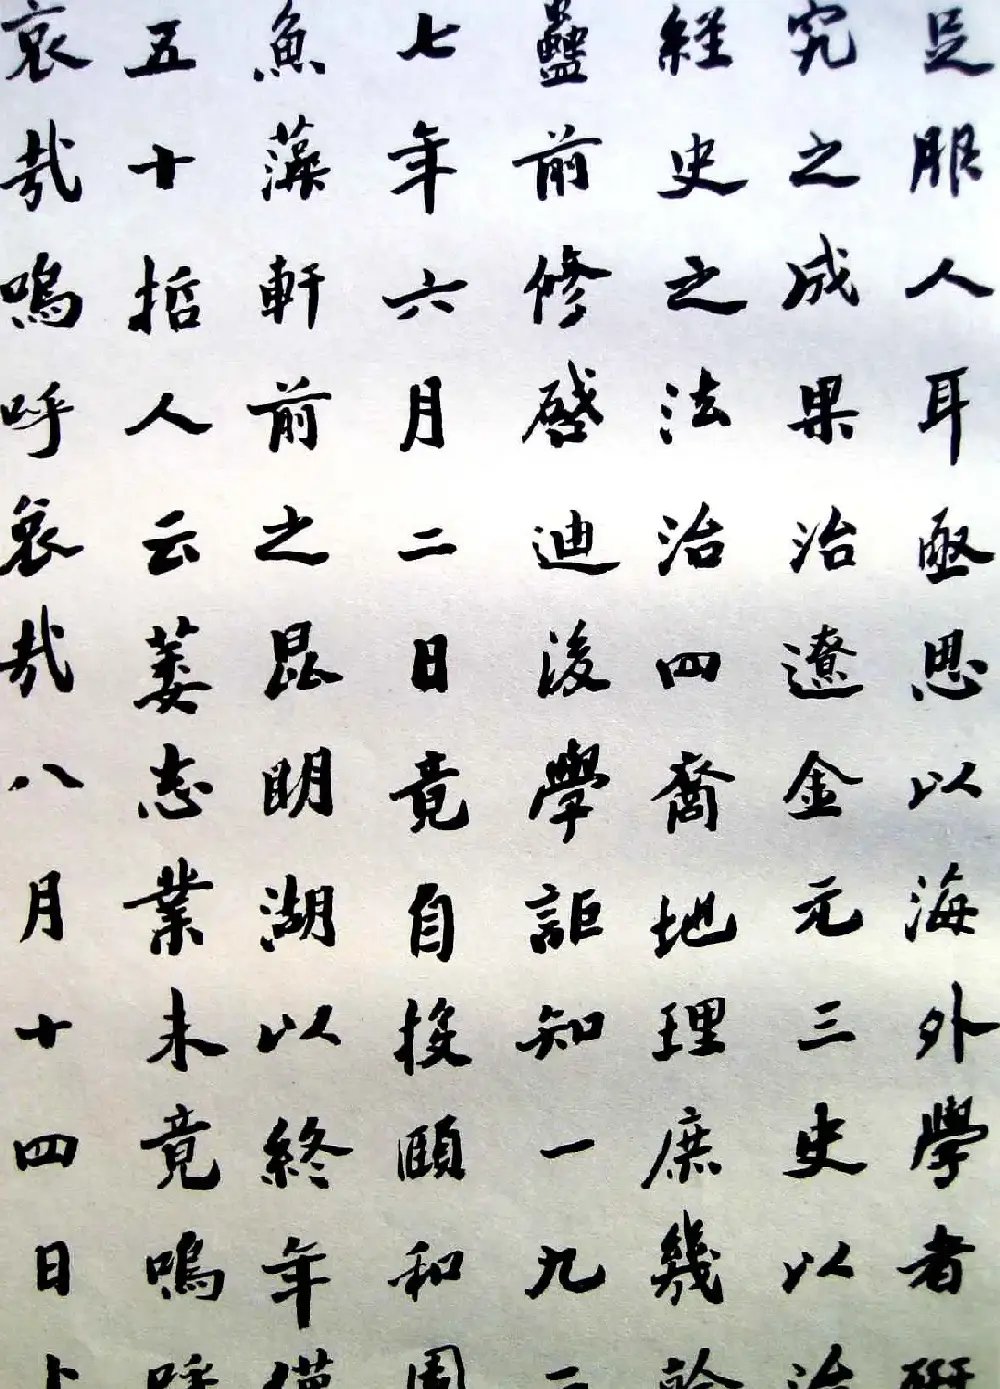 足服人耳亟思以海外學者研
究之成果治遼金元三史以治
經史之法治四裔地理庶幾幹
蠱前修啓迪後學詎知一九二
七年六月二日竟自投頤和園
魚藻軒前之昆明湖以終年僅
五十哲人云萎志業未竟嗚呼
哀哉嗚呼哀哉八月十四日